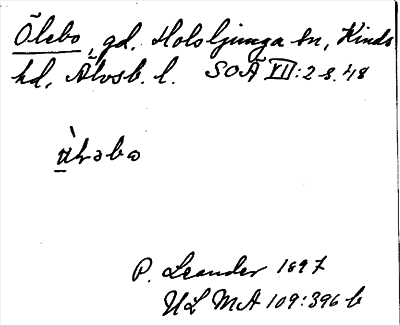 Ölebo, gd. Holsljunga sn, Kinds
hd, Älvsb. l. SOÄ XII:2 s. 48
P. Leander 1897
ULMA 109:396 b